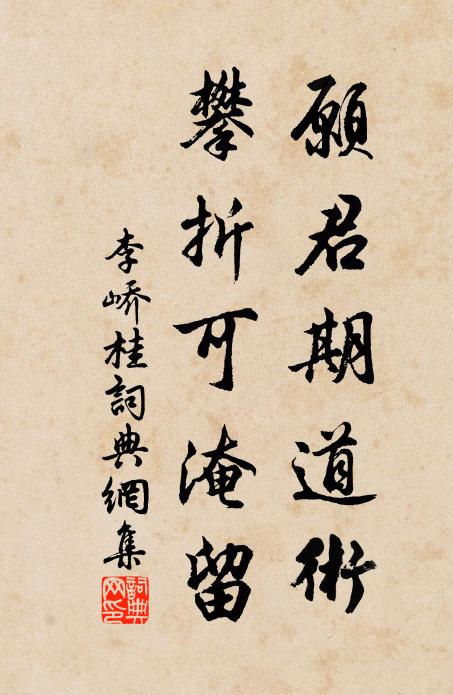 願君期道術
攀折可淹留
李嶠桂詞典網集
詞典網印